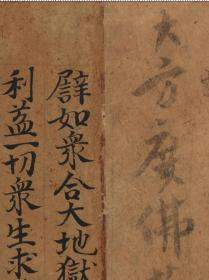 大方廣佛
譬如衆合大地獄
利益一切衆生求